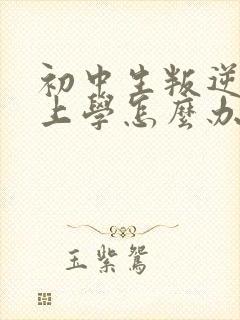 初中生叛逆
上學怎麼办
玉紫鴛